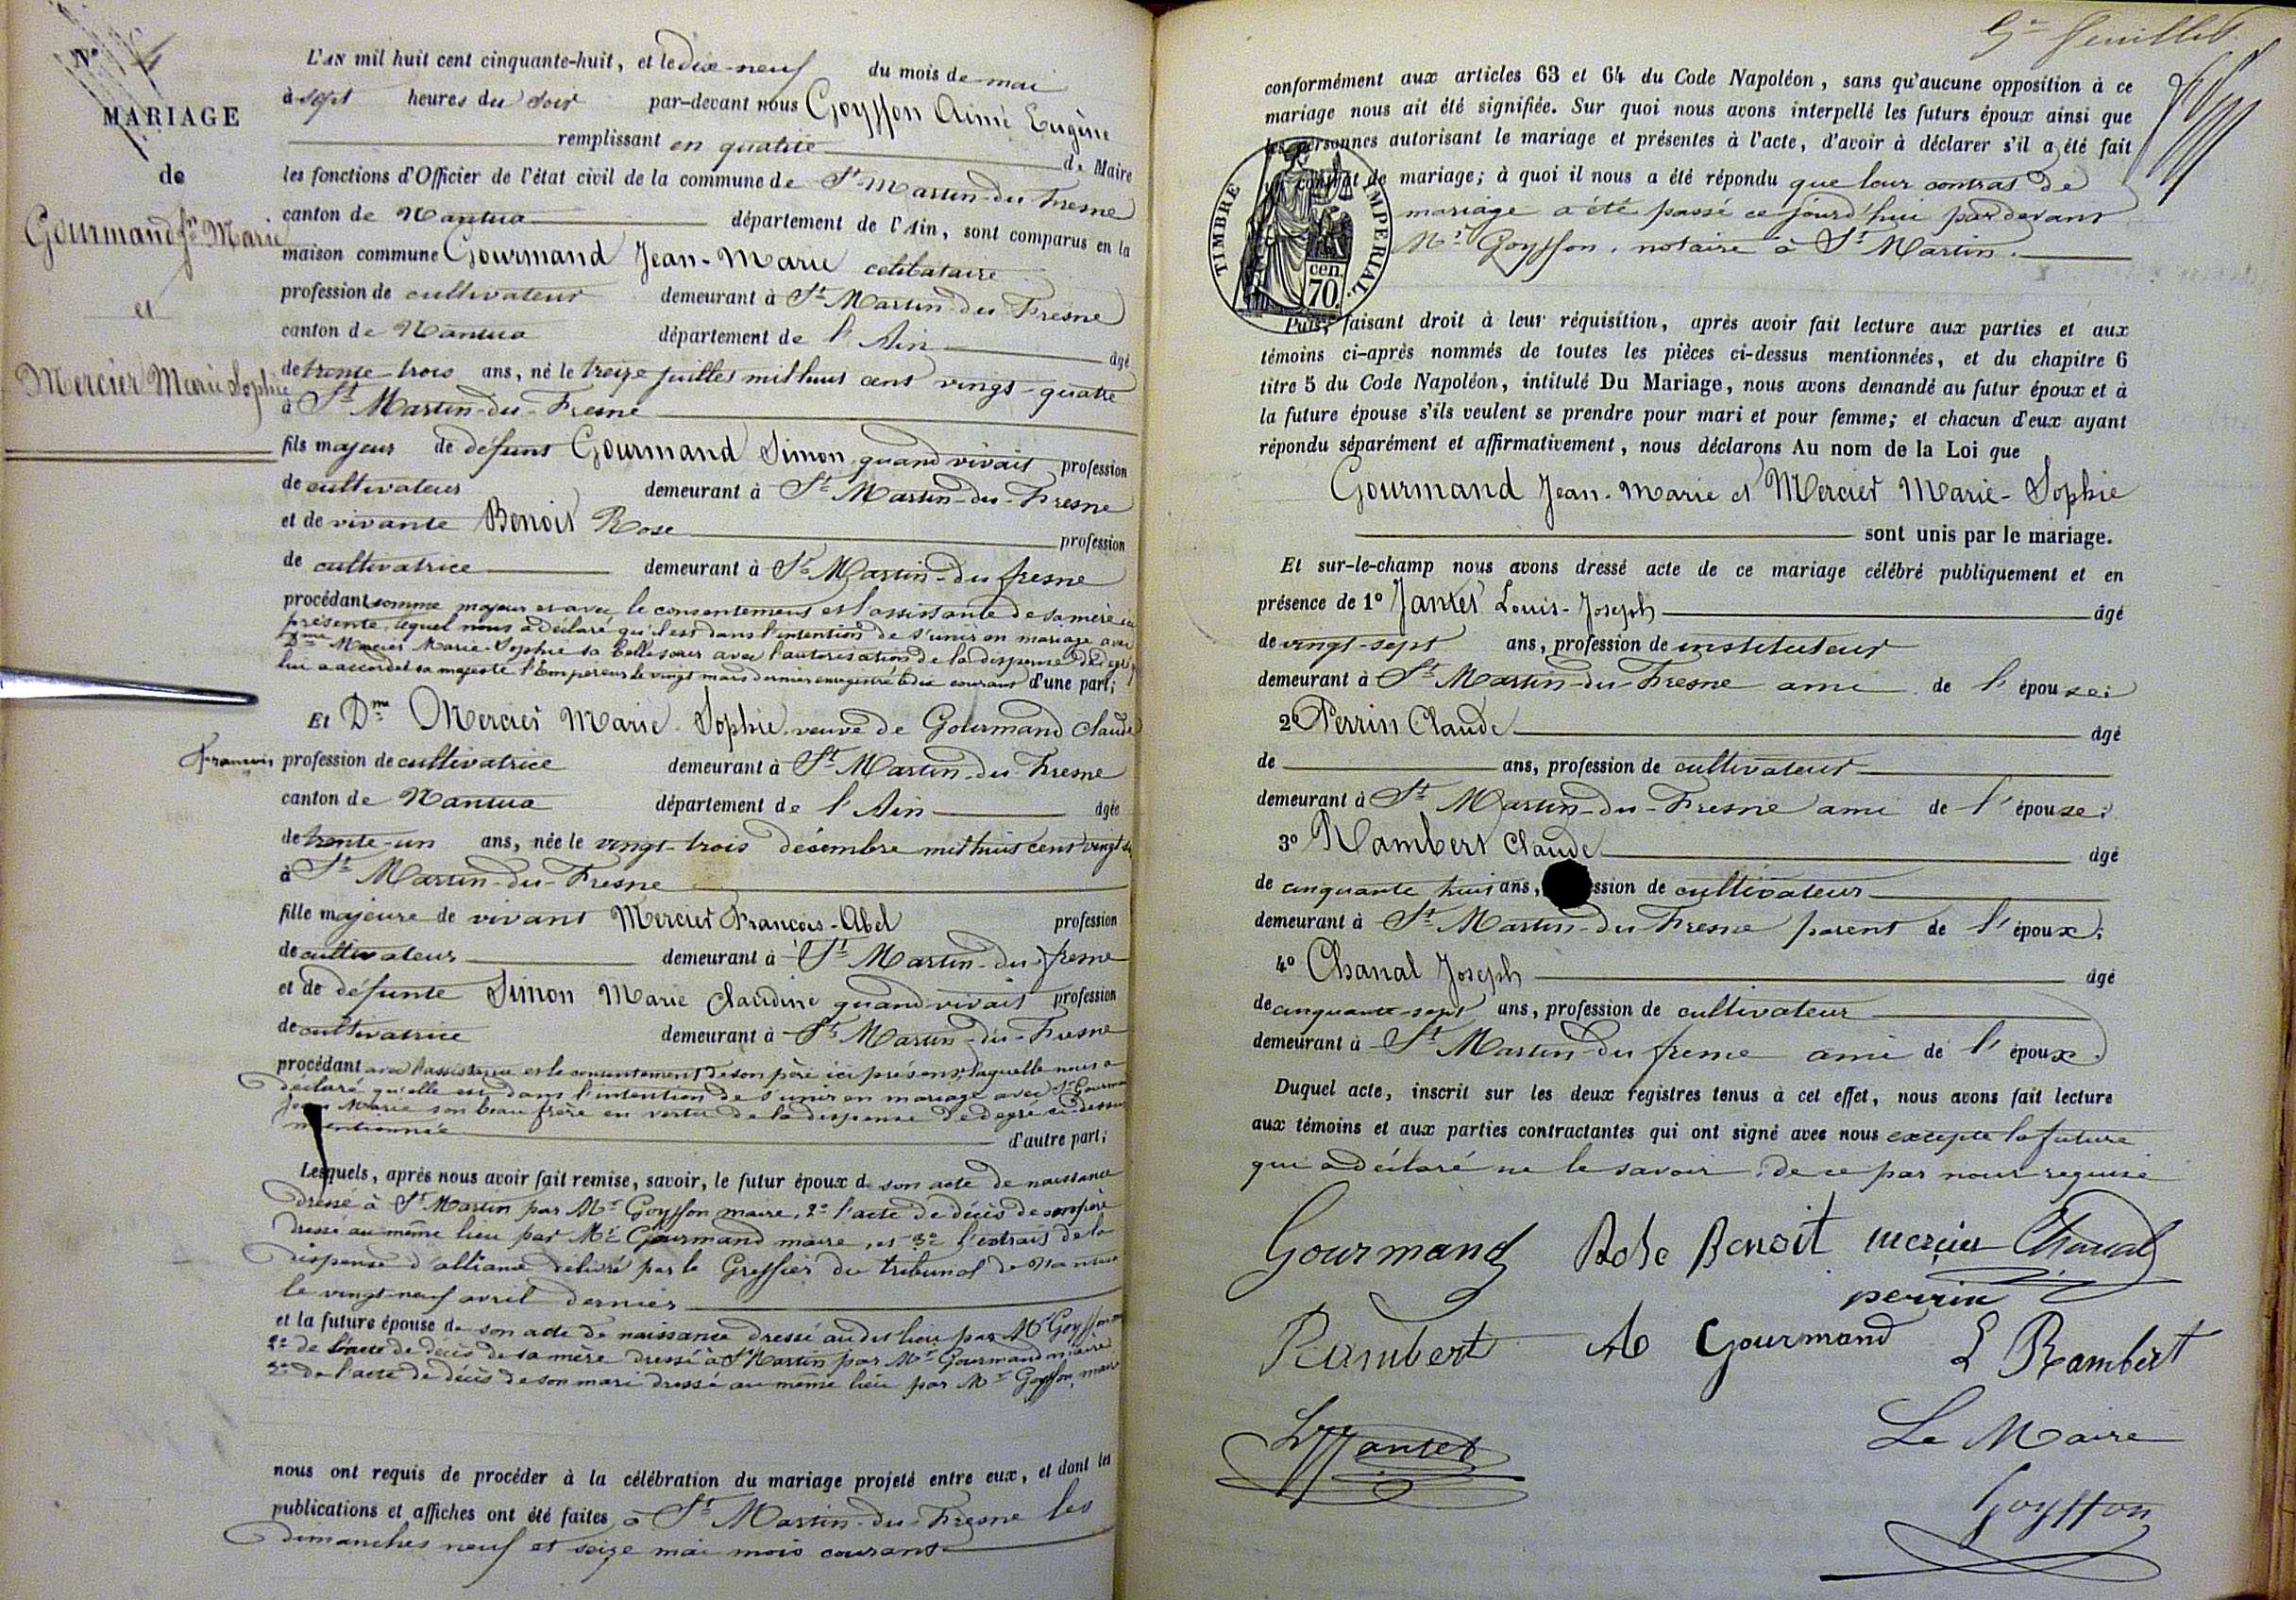 N° 4
MARIAGE
de
Gourmand Jn Marie
et
Mercier Marie Sophie
L'AN mil huit cent cinquante-huit, et le dix-neuf du mois de mai
à sept heures du soir par-devant nous Goyffon Aimé Eugène
remplissant en qualité de Maire
les fonctions d'Officier de l'état civil de la commune de St Martin-du-Fresne
canton de Nantua département de l'Ain, sont comparus en la
maison commune Gourmand Jean-Marie célibataire
profession de cultivateur demeurant à St Martin-du-Fresne
canton de Nantua département de l'Ain âgé
de trente-trois ans, né le treize juillet mil huit cent vingt-quatre
à St Martin-du-Fresne
fils majeur de défunt Gourmand Simon, quand vivait profession
de cultivateur demeurant à St Martin-du-Fresne
et de vivante Benoit Rose profession
de cultivatrice demeurant à St Martin-du-fresne
procédant comme majeur et avec le consentement et l'assistance de sa mère ici
présente, lequel nous a déclaré qu'il est dans l'intention de s'unir en mariage avec
Dme Mercier Marie-Sophie sa belle sœur avec l'autorisation de la dispense
lui a accordé sa majesté l'Empereur le vingt mars dernier enregistré le dix courant d'une part;
Et Dme Mercier Marie-Sophie, veuve de Gourmand Claude
François profession de cultivatrice demeurant à St Martin-du-Fresne
canton de Nantua département de l'Ain âgée
de trente-un ans, née le vingt-trois décembre mil huit cent vingt
à St Martin-du-Fresne
fille majeure de vivant Mercier François-Abel profession
de cultivateur demeurant à St Martin-du-fresne
et de défunte Simon Marie Claudine quand vivait profession
de cultivatrice demeurant à St Martin-du-Fresne
procédant avec l'assistance et le consentement de son père ici présent, laquelle nous a
déclaré qu'elle est dans l'intention de s'unir en mariage avec Sr Gourmand
Jean Marie son beau frère en vertu de la dispense de degré ci-dessus
mentionnée d'autre part;
Lesquels, après nous avoir fait remise, savoir, le futur époux de son acte de naissance
dressé à St Martin par Mr Goyffon maire, 2° l'acte de décès de son père
dressé au même lieu par Mr Gourmand maire, et 3° l'extrait de la
dispense d'alliance délivré par le Greffier du tribunal de Nantua
le vingt-neuf avril dernier
et la future épouse de son acte de naissance dressé au dit lieu par Mr Goyffon
2° de l'acte de décès de sa mère dressé à St Martin par Mr Gourmand maire
3° de l'acte de décès de son mari dressé au même lieu par Mr Goyffon, maire
nous ont requis de procéder à la célébration du mariage projeté entre eux, et dont les
publications et affiches ont été faites à St Martin-du-Fresne les
dimanches neuf et seize mai mois courant
feuillet
conformément aux articles 63 et 64 du Code Napoléon, sans qu'aucune opposition à ce
mariage nous ait été signifiée. Sur quoi nous avons interpellé les futurs époux ainsi que
les personnes autorisant le mariage et présentes à l'acte, d'avoir à déclarer s'il a été fait
un contrat de mariage; à quoi il nous a été répondu que leur contrat de
mariage a été passé ce jourd'hui par devant
Mr Goyffon, notaire à St Martin.
TIMBRE IMPÉRIAL.
cen.
70.
Puis, faisant droit à leur réquisition, après avoir fait lecture aux parties et aux
témoins ci-après nommés de toutes les pièces ci-dessus mentionnées, et du chapitre 6
titre 5 du Code Napoléon, intitulé Du Mariage, nous avons demandé au futur époux et à
la future épouse s'ils veulent se prendre pour mari et pour femme; et chacun d'eux ayant
répondu séparément et affirmativement, nous déclarons Au nom de la Loi que
Gourmand Jean-Marie et Mercier Marie-Sophie
sont unis par le mariage.
Et sur-le-champ nous avons dressé acte de ce mariage célébré publiquement et en
présence de 1° Jantet Louis-Joseph âgé
de vingt-sept ans, profession de instituteur
demeurant à St Martin-du-Fresne ami de l'épouse;
2° Perrin Claude âgé
de ans, profession de cultivateur
demeurant à St Martin-du-Fresne ami de l'épouse;
3° Rambert Claude âgé
de cinquante huit ans, profession de cultivateur
demeurant à St Martin-du-Fresne parent de l'époux;
4° Chanal Joseph âgé
de cinquante-sept ans, profession de cultivateur
demeurant à St Martin-du-fresne ami de l'époux.
Duquel acte, inscrit sur les deux registres tenus à cet effet, nous avons fait lecture
aux témoins et aux parties contractantes qui ont signé avec nous excepté la future
qui a déclaré ne le savoir, de ce par nous requise
Gourmand Rose Benoit mercier Chanal
perrin
Rambert A Gourmand L Rambert
Jantet Le Maire
Goyffon